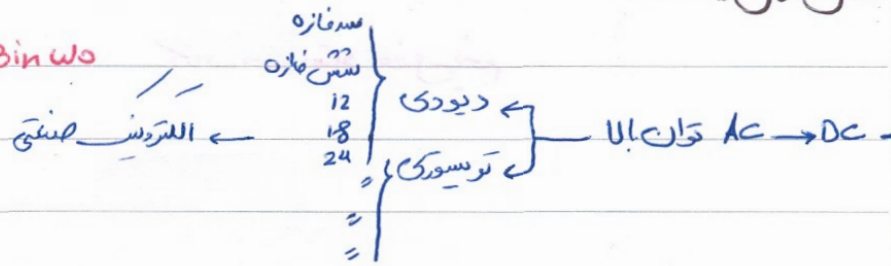 AC → DC توان بالا
دیودی
تریستوری
سه فازه
شش فازه
12
18
24
〃
〃
〃
← الکترونیک صنعتی
Bin wo